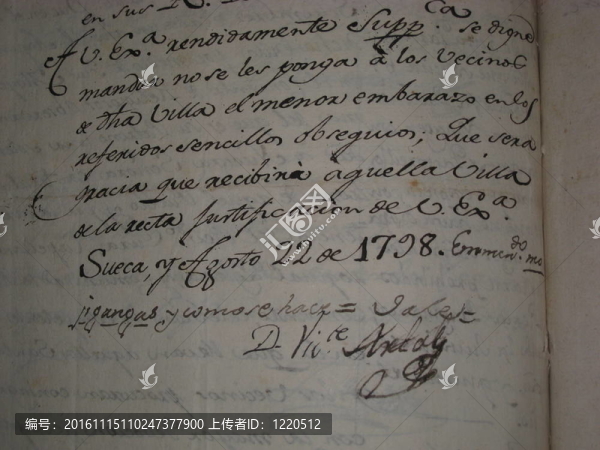 en sus
A V. Ex.a rendidamente Supp.ca se digne
mandar no se les ponga à los Vecinos
de dha Villa el menor embarazo en los
referidos sencillos obsequios; Que sera
gracia que recibirà aquella Villa
de la recta Justificacion de V. Ex.a
Sueca, y Agosto 22 de 1798. Enmen.do mo
jigangas y como se hace =
D. Vic.te
汇图网
编号：20161115110247377900 上传者ID：1220512